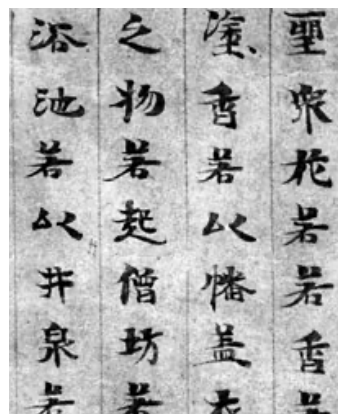 聖衆花若若香若
塗香若以幡盖
之物若起僧坊若
浴池若以井泉若